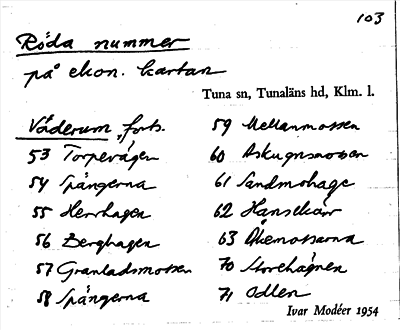 103
Röda nummer
på ekon. kartan
Tuna sn, Tunaläns hd, Klm. l.
Våderum, forts.
53 Torpevägen
54 Spångerna
55 Herrhagen
56 Berghagen
57 Granladsmossen
58 Spångerna
59 Mellanmossen
60 Askugnsmossen
61 Sandmohage
62 Hansekärr
63 Åkemossarna
70 Storehagen
71 Odlen
Ivar Modéer 1954